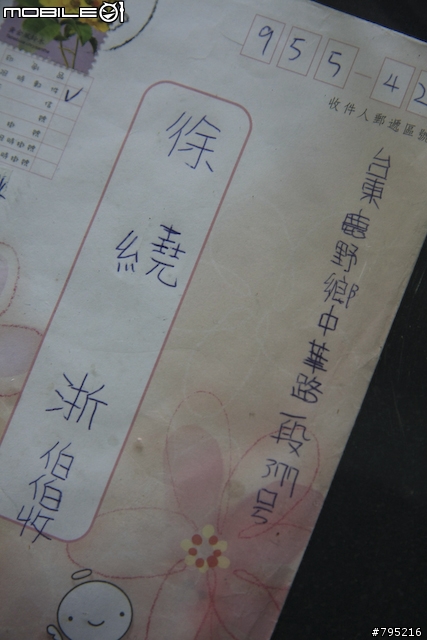 MOBILE01
955-42
收件人郵遞區號
台東鹿野鄉中華路一段377號
徐繞浙伯伯收
#795216